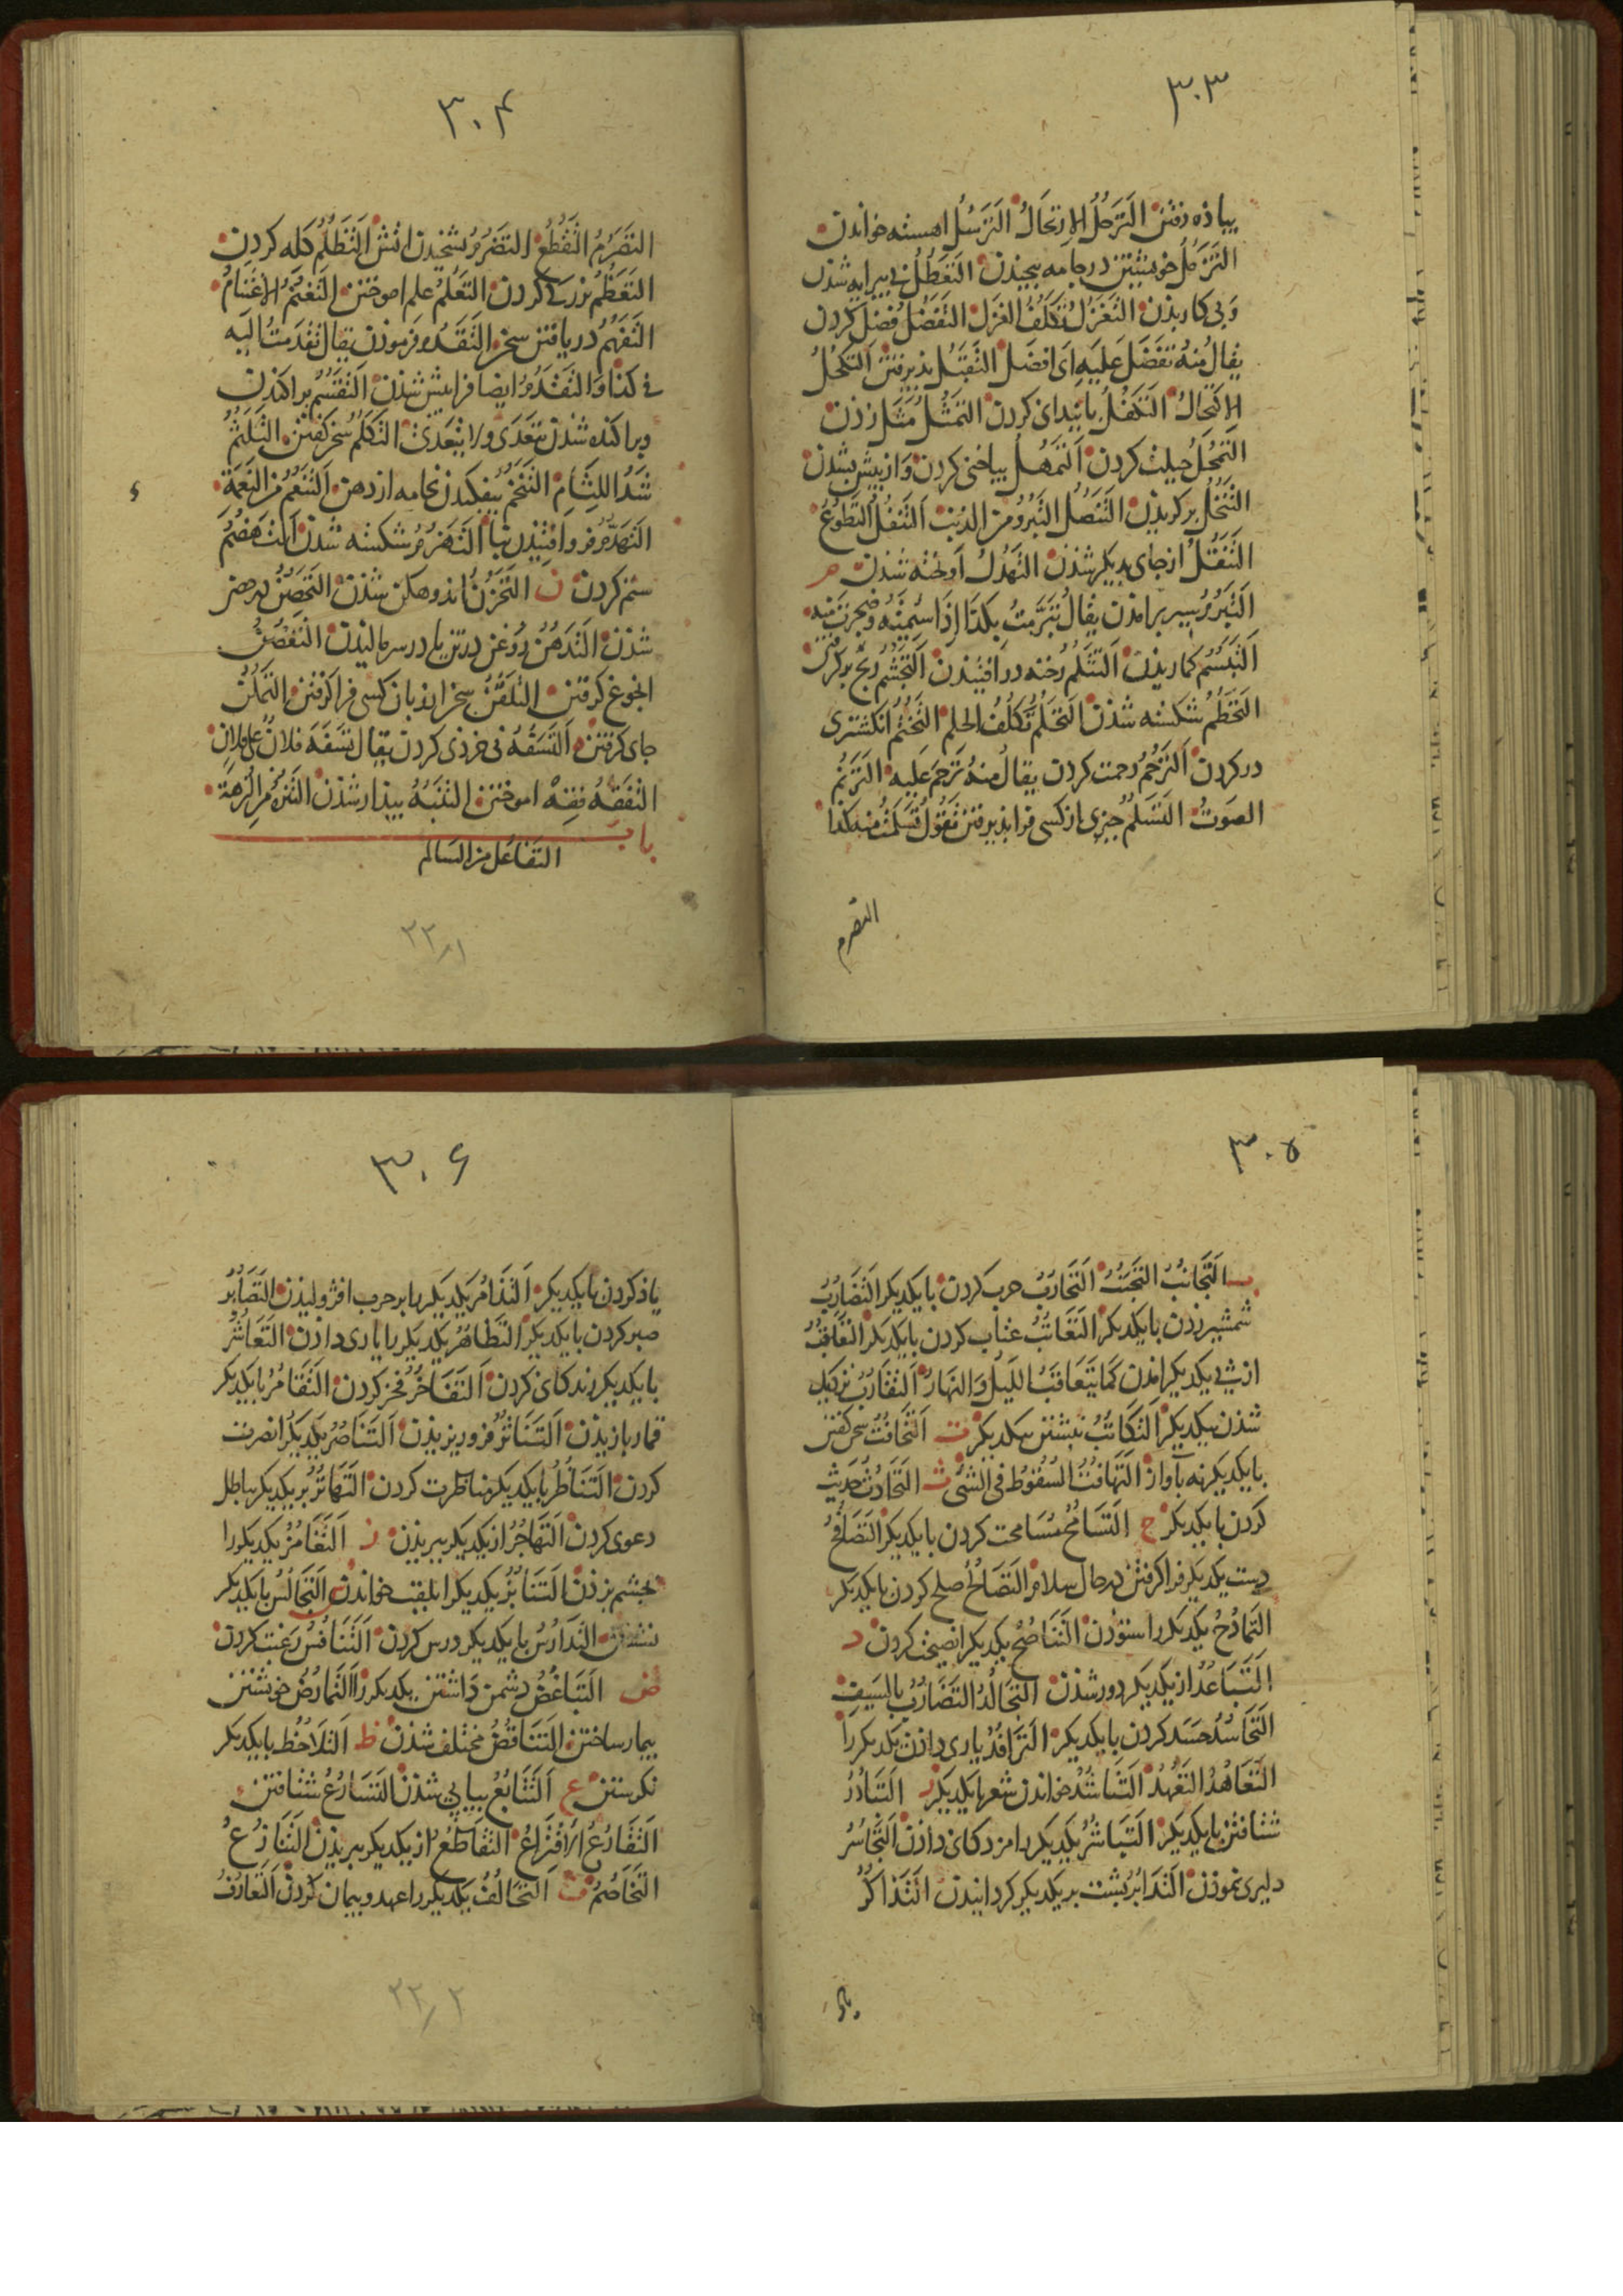 ۳۰۳
پیاذه رفتن التَرَجُّلُ الاِرتِجَالُ التَرَسُّلُ اهسته خواندن
التَزَمُّلُ خویشتن در جامه پیچیذن التَعَطُّلُ بی پیرایه شدن
وَبی کار بذن التَغَزُّلُ تَکَلُّفُ الغَزَل التَفَضُّلُ فضل کردن
یقالُ مِنهُ تَفَضَّلَ عَلَیهِ ای افضَلَ التَقَبُّلُ پذیرفتن التَکَحُّلُ
الاِکتِحَالُ التَکَفُّلُ پایندانی کردن التَمَثُّلُ مَثَل زذن
التَمَحُّلُ حیلت کردن التَمَهُّلُ کردن وَاز پیش بشدن
التَنَخُّلُ برکزیذن التَنَصُّلُ التَبَرُّؤ من الذنب التَنَفُّلُ التَطَوُّعُ
التَنَقُّلُ ازجای بدیکر شذن التَهَدُّلُ آویخته شدن م
التَبَرُّمُ بسیر برامذن یقالُ تَبَرَّمتُ بِکَذَا اِذَا سَئِمتَهُ وضجرت منه
التَبَسُّمُ کماریذن التَثَلُّمُ رخنه در افتیذن التَجَشُّمُ رنج برکرفتن
التَحَطُّمُ شکسته شذن التَحَلُّمُ تَکَلُّفُ الحلم التَخَتُّمُ انکشتری
در کردن التَرَحُّمُ رحمت کردن یقالُ منهُ تَرَحَّمَ عَلَیه التَرَنُّمُ
الصَوتُ التَسَلُّمُ چیزی از کسی فرا پذیرفتن تَقُولُ تَسَلَّمتُ منه کذا
التصرم
۳۰۴
التَصَرُّمُ التَقَطُّعُ التَضَرُّمُ اتش التَظَلُّمُ کله کردن
التَعَظُّمُ بزرکی کردن التَعَلُّمُ علم اموختن التَغَنُّمُ الاِغتِنَامُ
التَفَهُّمُ دریافتن سخن التَقَدُّمُ فرموذن یقال تَقَدَّمتُ اِلَیه
فی کذا وَالتَقَدُّمُ ایضا فراپیش شذن التَقَسُّمُ پراکندن
وپراکنده شدن یتَعَدّی ولا یتعدّی التَکَلُّمُ سخن کفتن التَلَثُّمُ
شَدُّ اللِثَامِ التَنَخُّمُ بیفکندن نخامه از دهن التَنَعُّمُ من النَعمَة
التَهَدُّمُ فروافتیذن بنا التَهَزُّمُ شکسته شدن التَهَضُّمُ
ستم کردن ن التَحَزُّنُ اندوهکن شذن التَحَصُّنُ در حصن
شذن التَدَهُّنُ روغن در تن یا در سر مالیذن التَغَضُّنُ
انجوغ کرفتن التَلَقُّنُ سخن از زبان کسی فرا کرفتن التَمَکُّنُ
جای کرفتن ه التَسَفُّهُ بی خردی کردن یقال تَسَفَّهَ فلانٌ علی فلانٍ
التَفَقُّهُ فقه اموختن التَنَبُّهُ بیذار شذن التَنَزُّهُ من النُزهَة
باب
التفاعل من السالم
۲۲/۱
۳۰۵
ب التَجَانُبُ التَجَنُّبُ التَحَارُبُ حرب کردن بایکدیکر التَضَارُبُ
شمشیر زدن بایکدیکر التَعَاتُبُ عتاب کردن بایکدیکر التَعَاقُبُ
از پی یکدیکر امذن کَمَا یَتَعَاقَبُ اللَیلُ وَالنهار التَقَارُبُ نزدیک
شذن بیکدیکر التَکَاتُبُ نبشتن بیکدیکر ت التَخَافُتُ سخن کفتن
بایکدیکر نه بآواز التَهَافُتُ السُقُوطُ فی الشئ ث التَحَادُثُ حدیث
کردن بایکدیکر ح التَسَامُحُ مسامحت کردن بایکدیکر التَصَافُحُ
دست یکدیکر فرا کرفتن در حال سلام التَصَالُحُ صلح کردن بایکدیکر
التَمَادُحُ یکدیکر را ستوذن التَنَاصُحُ یکدیکر را نصیحت کردن د
التَبَاعُدُ از یکدیکر دور شذن التَجَالُدُ التَضَارُبُ بالسَیفِ
التَحَاسُدُ حَسَد کردن بایکدیکر التَرَافُدُ یاری دادن یکدیکر را
التَعَاهُدُ التَعَهُّدُ التَنَاشُدُ خواندن شعر بایکدیکر ر التَبَادُرُ
شتافتن بایکدیکر التَبَاشُرُ یکدیکر را مژدکانی داذن التَجَاسُرُ
دلیری نموذن التَدَابُرُ پشت بر یکدیکر کردانیدن التَذَاکُرُ
۳۰۶
یاذ کردن بایکدیکر التَذَامُرُ یکدیکر را بر حرب افژولیذن التَصَابُرُ
صبر کردن بایکدیکر التَظَاهُرُ یکدیکر را یاری دادن التَعَاشُرُ
بایکدیکر زندکانی کردن التَفَاخُرُ فخر کردن التَقَامُرُ بایکدیکر
قمار بازیذن التَنَاثُرُ فرو ریزیذن التَنَاصُرُ یکدیکر را نصرت
کردن التَنَاظُرُ بایکدیکر مناظرت کردن التَهَاتُرُ بر یکدیکر بباطل
دعوی کردن التَهَاجُرُ از یکدیکر ببریذن ز التَغَامُزُ یکدیکر را
بچشم بزذن التَنَابُزُ یکدیکر را بلقب خواندن س التَجَالُسُ بایکدیکر
التَدَارُسُ بایکدیکر درس کردن التَنَافُسُ رغبت کردن
ض التَبَاغُضُ دشمن دَاشتن یکدیکر را التَمَارُضُ خویشتن
بیمار ساختن التَنَاقُضُ مختلف شذن ظ التَلَاحُظُ بایکدیکر
نکرستن ع التَتَابُعُ بیاپی شذن التَسَارُعُ شتافتن
التَقَارُعُ الاِقتِرَاعُ التَقَاطُعُ از یکدیکر ببریذن التَنَازُعُ
التَخَاصُمُ ف التَحَالُفُ یکدیکر را عهد وپیمان کردن التَعَارُفُ
۲۲/۲